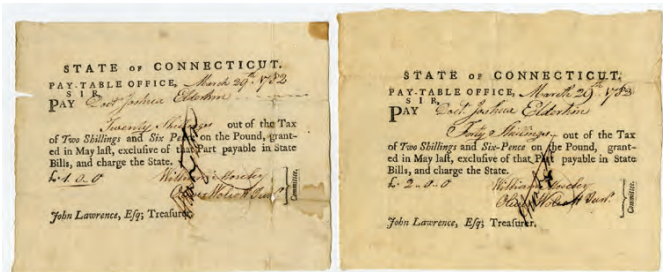 STATE OF CONNECTICUT.
PAY-TABLE OFFICE, March 29th 1782
SIR,
PAY Doct Joshua Elderkin
Twenty Shillings out of the Tax
of Two Shillings and Six Pence on the Pound, grant-
ed in May last, exclusive of that Part payable in State
Bills, and charge the State.
£1-0-0
William Moseley
Oliver Wolcott Junr.
Committee.
John Lawrence, Esq; Treasurer.
STATE OF CONNECTICUT.
PAY-TABLE OFFICE, March 29th 1782
SIR,
PAY Doct Joshua Elderkin
Forty Shillings out of the Tax
of Two Shillings and Six-Pence on the Pound, grant-
ed in May last, exclusive of that Part payable in State
Bills, and charge the State.
£ 2-0-0
William Moseley
Oliver Wolcott Junr.
Committee.
John Lawrence, Esq; Treasurer.